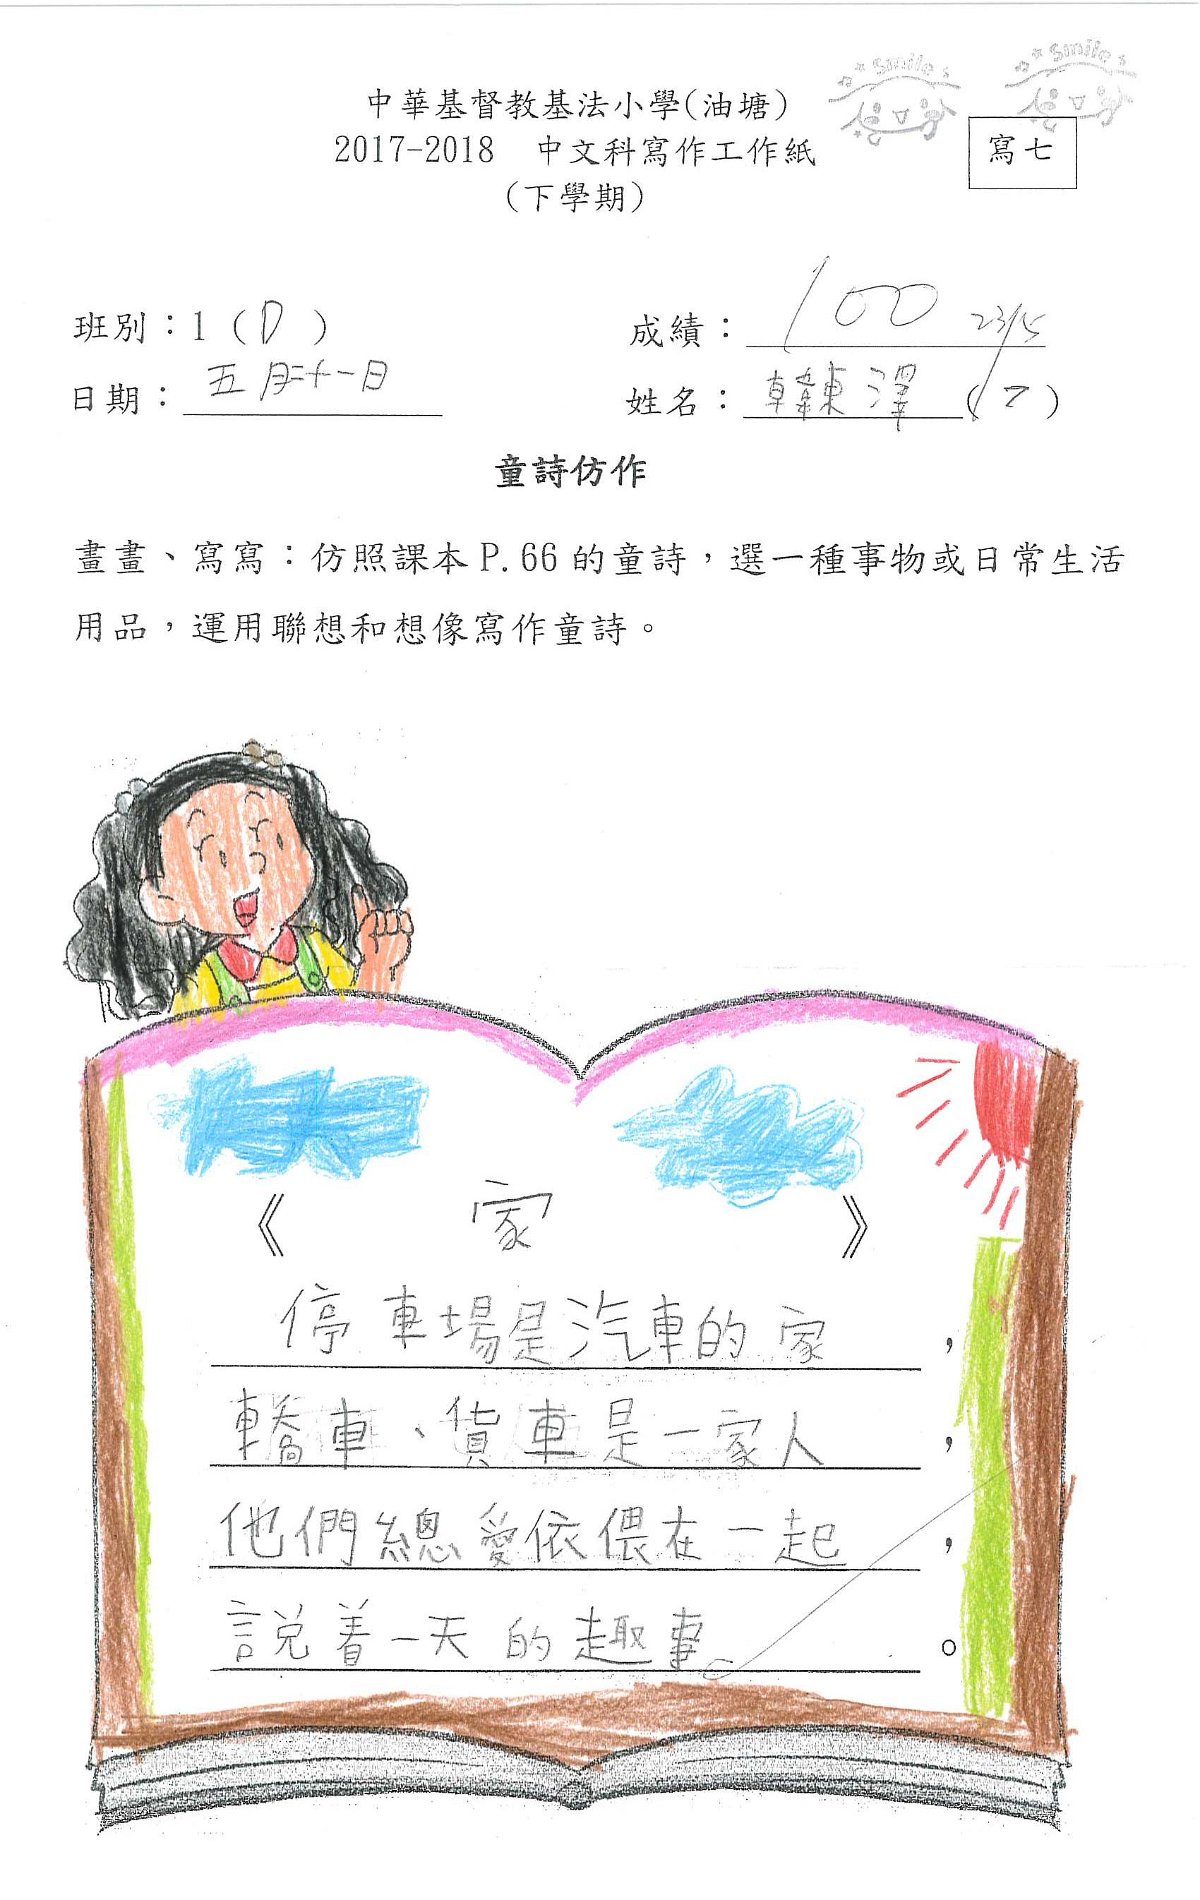 smile smile
中華基督教基法小學(油塘)
2017-2018 中文科寫作工作紙
寫七
(下學期)
班別：1（D）
成績：100 23/5
日期：五月二十一日
姓名：韓東澤(7)
童詩仿作
畫畫、寫寫：仿照課本P.66的童詩，選一種事物或日常生活
用品，運用聯想和想像寫作童詩。
《 家 》
停車場是汽車的家，
轎車、貨車是一家人，
他們總愛依偎在一起，
說着一天的趣事。